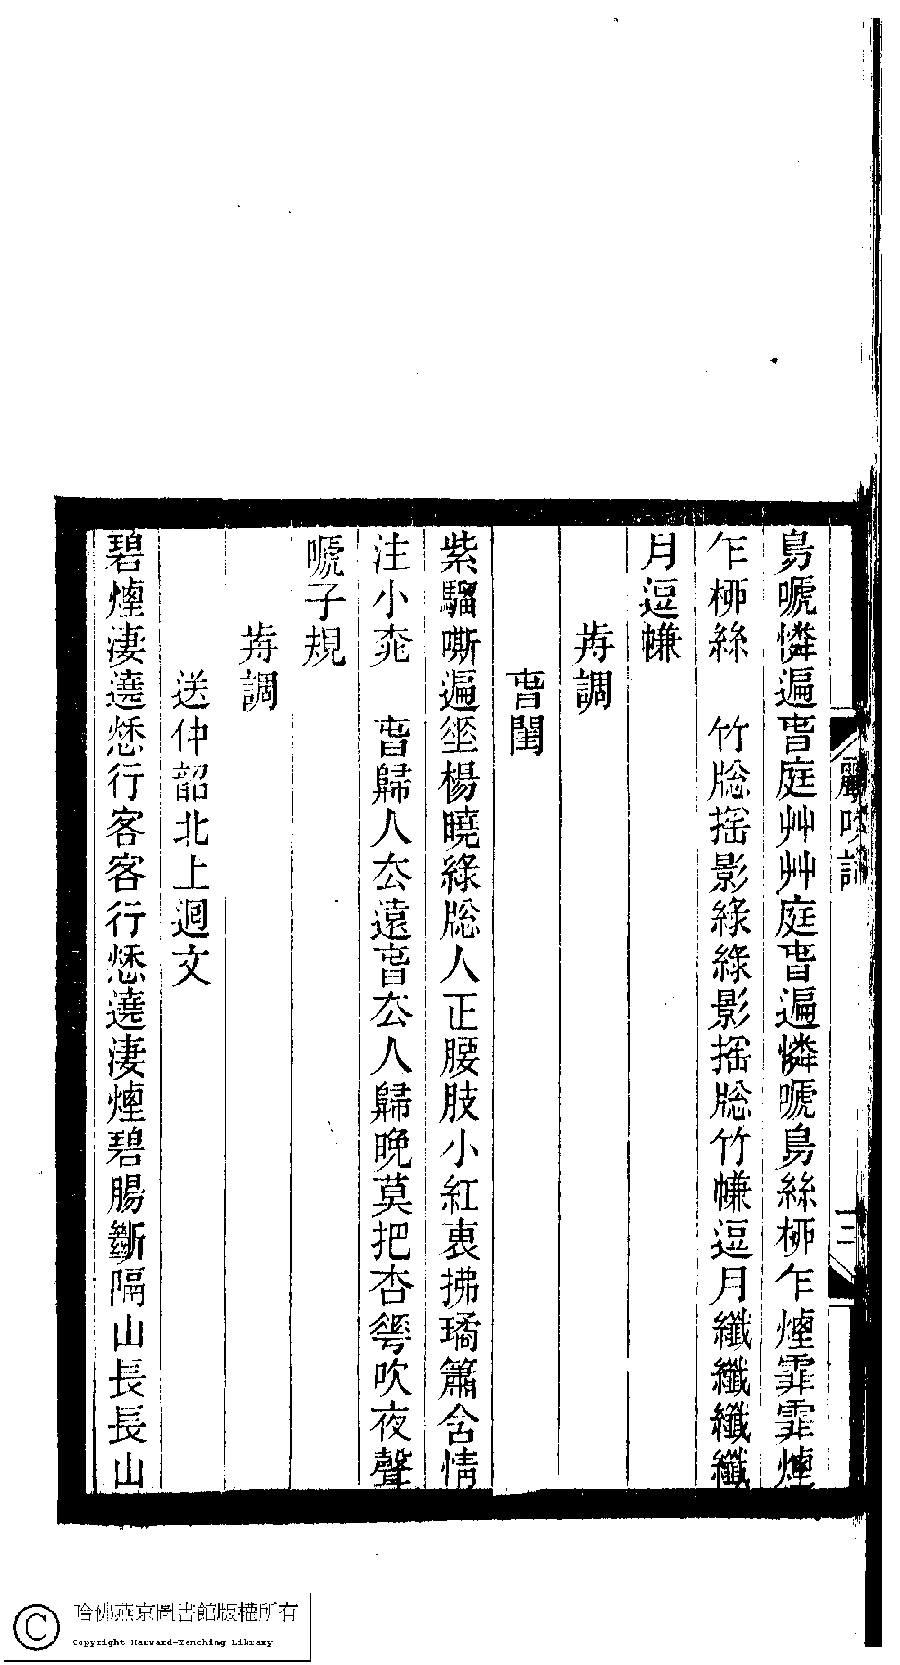 鸝吹詞
三
鳥嗁憐遍旾庭艸艸庭旾遍憐嗁鳥絲桺乍煙霏霏煙
乍桺絲　竹牕搖影綠綠影搖牕竹㡘逗月纖纖纖纖
月逗㡘
歬調
旾閨
紫騮嘶遍垂楊曉綠牕人正腰肢小紅裏拂璚簫含情
注小窕　旾歸人厺遠旾厺人歸晚莫把杏華吹夜聲
嗁子規
歬調
送仲韶北上迴文
碧煙淒遶愁行客客行愁遶淒煙碧腸斷隔山長長山
哈佛燕京圖書館版權所有
Copyright Harvard-Yenching Library